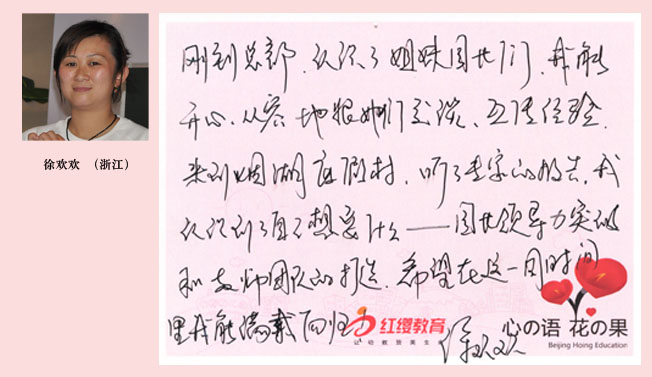 徐欢欢 （浙江）
刚到总部，认识了姐妹园长们，我能
开心、从容地跟她们交谈、互传经验。
来到湖度假村，听了老师的报告，我
认识到了自己想要什么——园长领导力突破
和教师团队的打造。希望在这一周时间
里我能满载而归！
红缨教育
让幼教放美生命
徐欢欢
心の语 花の果
Beijing Hoing Education